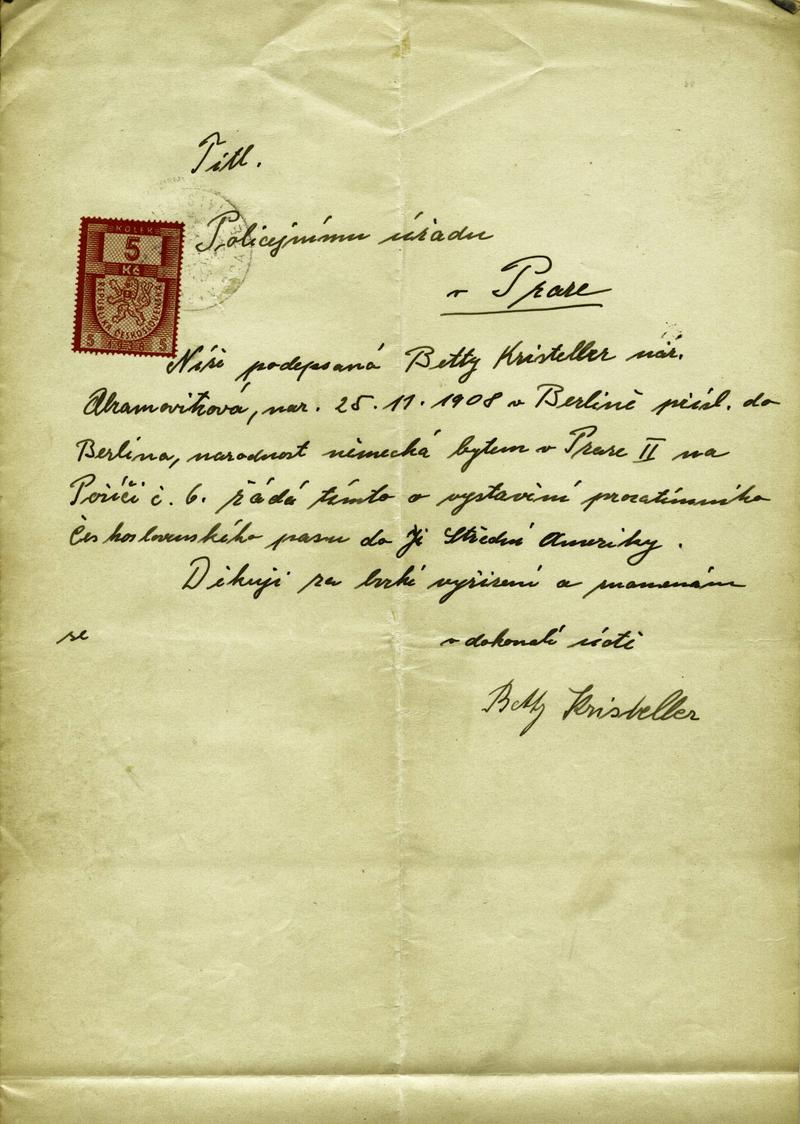 Titl.
KOLEK
5
Kč
REPUBLIKA ČESKOSLOVENSKÁ
5 5
Policejnímu úřadu
v Praze
Níže podepsaná Betty Kristeller nár.
Abramovitzová, nar. 25. 11. 1908 v Berlíně přísl. do
Berlína, narodnost německá bytem v Praze II na
Poříčí č. 6. žádá tímto o vystavění prozatímního
československého pasu do Ji Střední Ameriky.
Děkuji za brzké vyřízení a znamenám
se v dokonalé úctě
Betty Kristeller